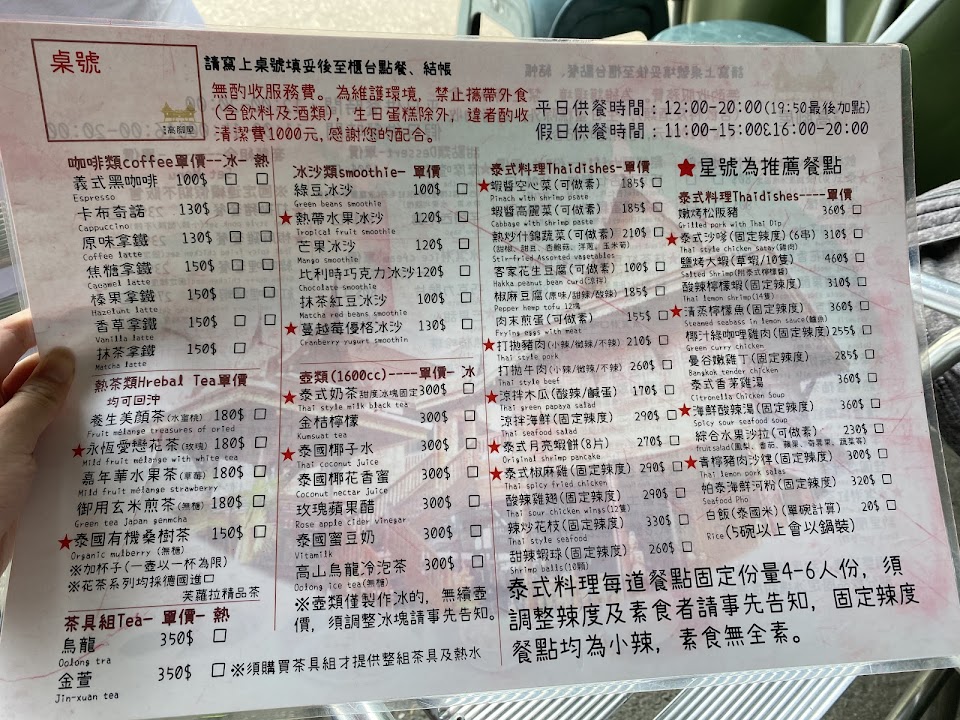 桌號
高腳屋
請寫上桌號填妥後至櫃台點餐、結帳
無酌收服務費。為維護環境,禁止攜帶外食
(含飲料及酒類),生日蛋糕除外,違者酌收
清潔費1000元,感謝您的配合。
平日供餐時間:12:00-20:00(19:50最後加點)
假日供餐時間:11:00-15:00&16:00-20:00
咖啡類coffee單價--冰- 熱
義式黑咖啡 100$ □ □
Espresso
卡布奇諾 130$ □ □
Cappuccino
原味拿鐵 130$ □ □
Coffee latte
焦糖拿鐵 150$ □ □
Caramel latte
榛果拿鐵 150$ □ □
Hazelunt latte
香草拿鐵 150$ □ □
Vanilla latte
抹茶拿鐵 150$ □ □
Matcha latte
熱茶類Hrebal Tea單價
均可回沖
養生美顏茶(水蜜桃) 180$ □
Fruit mélange treasures of dried
★永恆愛戀花茶(玫瑰) 180$ □
Mild fruit mélange with white tea
嘉年華水果茶(草莓) 180$ □
Mild fruit mélange strawberry
御用玄米煎茶(無糖) 180$ □
Green tea Japan genmcha
★泰國有機桑樹茶 150$ □
Organic mulberry (無糖)
※加杯子(一壺以一杯為限)
※花茶系列均採德國進口
芙蘿拉精品茶
茶具組Tea- 單價- 熱
烏龍 350$ □
Oolong tra
金萱 350$ □ ※須購買茶具組才提供整組茶具及熱水
Jin-xuan tea
冰沙類smoothie- 單價
綠豆冰沙 100$ □
Green beans smoothie
★熱帶水果冰沙 120$ □
Tropical fruit smoothie
芒果冰沙 120$ □
Mango smoothie
比利時巧克力冰沙120$ □
Chocolate smoothie
抹茶紅豆冰沙 100$ □
Matcha red beans smoothie
★蔓越莓優格冰沙 130$ □
Cranberry yugurt smoothie
壺類(1600cc)----單價- 冰
★泰式奶茶 甜度冰塊固定300$ □
Thai style milk black tea
金桔檸檬 300$ □
Kumsuat tea
★泰國椰子水 300$ □
Thai coconut juice
泰國椰花香蜜 300$ □
Coconut nectar juice
玫瑰蘋果醋 300$ □
Rose apple cider vinegar
泰國蜜豆奶 300$ □
Vitamilk
高山烏龍冷泡茶 300$ □
Oolong ice tea(無糖)
※壺類僅製作冰的,無續壺
價,須調整冰塊請事先告知。
泰式料理Thaidishes-單價
★蝦醬空心菜(可做素) 185$ □
Pinach with shrimp paste
蝦醬高麗菜(可做素) 185$ □
Cabbage with shrimp paste
熱炒什錦蔬菜(可做素) 210$ □
(甜椒、甜豆、杏鮑菇、洋蔥、玉米筍)
Stir-fried Assorted vegetables
客家花生豆腐(可做素) 100$ □
Hakka peanut bean curd(涼拌)
椒麻豆腐(原味/甜辣/酸辣) 185$ □
Pepper hemp tofu 12塊
肉末煎蛋(可做素) 155$ □
Frying eggs with meat
★打拋豬肉(小辣/微辣/不辣) 210$ □
Thai style pork
打拋牛肉(小辣/微辣/不辣) 260$ □
Thai style beef
★涼拌木瓜(酸辣/鹹蛋) 170$ □
Thai green papaya salad
涼拌海鮮(固定辣度) 290$ □
Thai seafood salad
★泰式月亮蝦餅(8片) 270$ □
Original shrimp pancake
★泰式椒麻雞(固定辣度) 290$ □
Thai spicy fried chicken
酸辣雞翅(固定辣度) 290$ □
Thai sour chicken wings(12隻)
辣炒花枝(固定辣度) 330$ □
Thai style seafood
甜辣蝦球(固定辣度) 260$ □
Shrimp balls(10顆)
★星號為推薦餐點
泰式料理Thaidishes----單價
嫩烤松阪豬 360$ □
Grilled pork with Thai Dip
★泰式沙嗲(固定辣度)(6串) 310$ □
Thai style chicken satay(雞肉)
鹽烤大蝦(草蝦/10隻) 460$ □
Salted Shrimp(附泰式檸檬醬)
酸辣檸檬蝦(固定辣度) 310$ □
Thai lemon shrimp(14隻)
★清蒸檸檬魚(固定辣度) 360$ □
Steamed seabass in lemon sauce(鱸魚)
椰汁綠咖哩雞肉(固定辣度)255$ □
Green curry chicken
曼谷嫩雞丁(固定辣度) 285$ □
Bangkok tender chicken
泰式香茅雞湯 360$ □
Citronella Chicken Soup
★海鮮酸辣湯(固定辣度) 360$ □
Spicy sour seafood soup
綜合水果沙拉(可做素) 230$ □
★青檸豬肉沙律(固定辣度) 300$ □
Thai lemon pork salas
帕泰海鮮河粉(固定辣度) 320$ □
Seafood Pho
白飯(泰國米)(單碗計算) 20$ □
Rice(5碗以上會以鍋裝)
泰式料理每道餐點固定份量4-6人份,須
調整辣度及素食者請事先告知,固定辣度
餐點均為小辣,素食無全素。